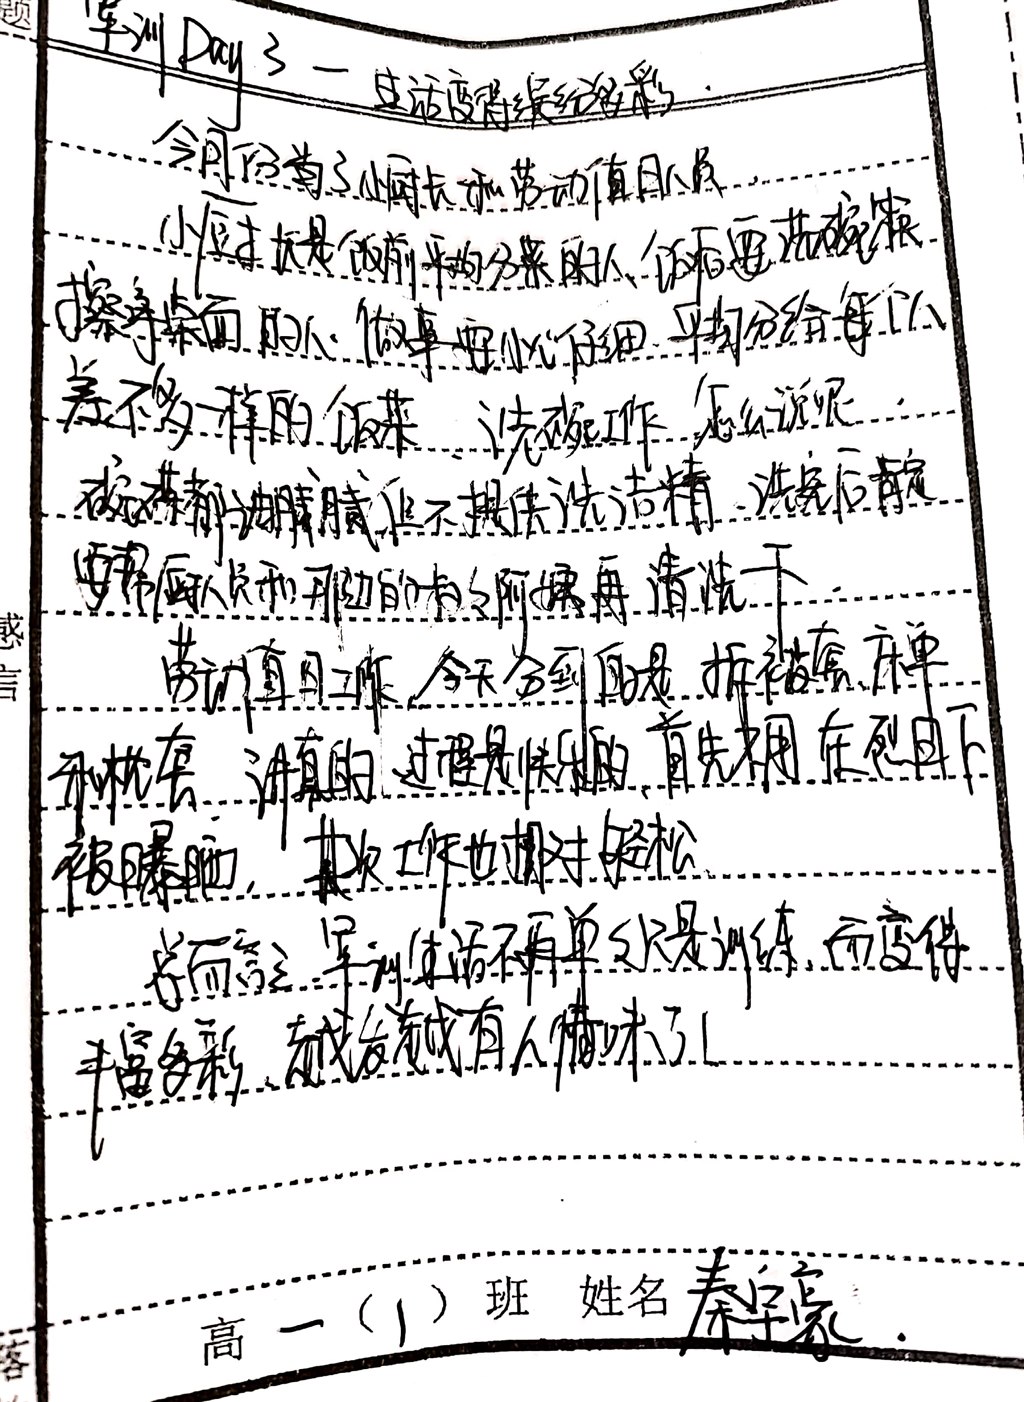 题
军训Day 3 — 生活变得缤纷多彩.
今日份当了小厨长和劳动值日人员.
小厨长就是饭前平均分菜的人,饭后要洗碗筷
擦净桌面的人.做事要小心仔细.平均分给每个人
差不多一样的饭菜.洗碗工作怎么说呢.
碗碟都油腻腻,但不提供洗洁精.洗完后肯定
要帮厨人员和那边的阿姨再清洗一下.
劳动值日工作,今天分到的是拆被套、床单
和枕套.讲真的过程是快乐的.首先不用在烈日下
被曝晒.其次工作也相对轻松.
总而言之,军训生活不再单单只是训练,而变得
丰富多彩、越发越有人情味了!
感
言
高一(1)班 姓名 秦
落